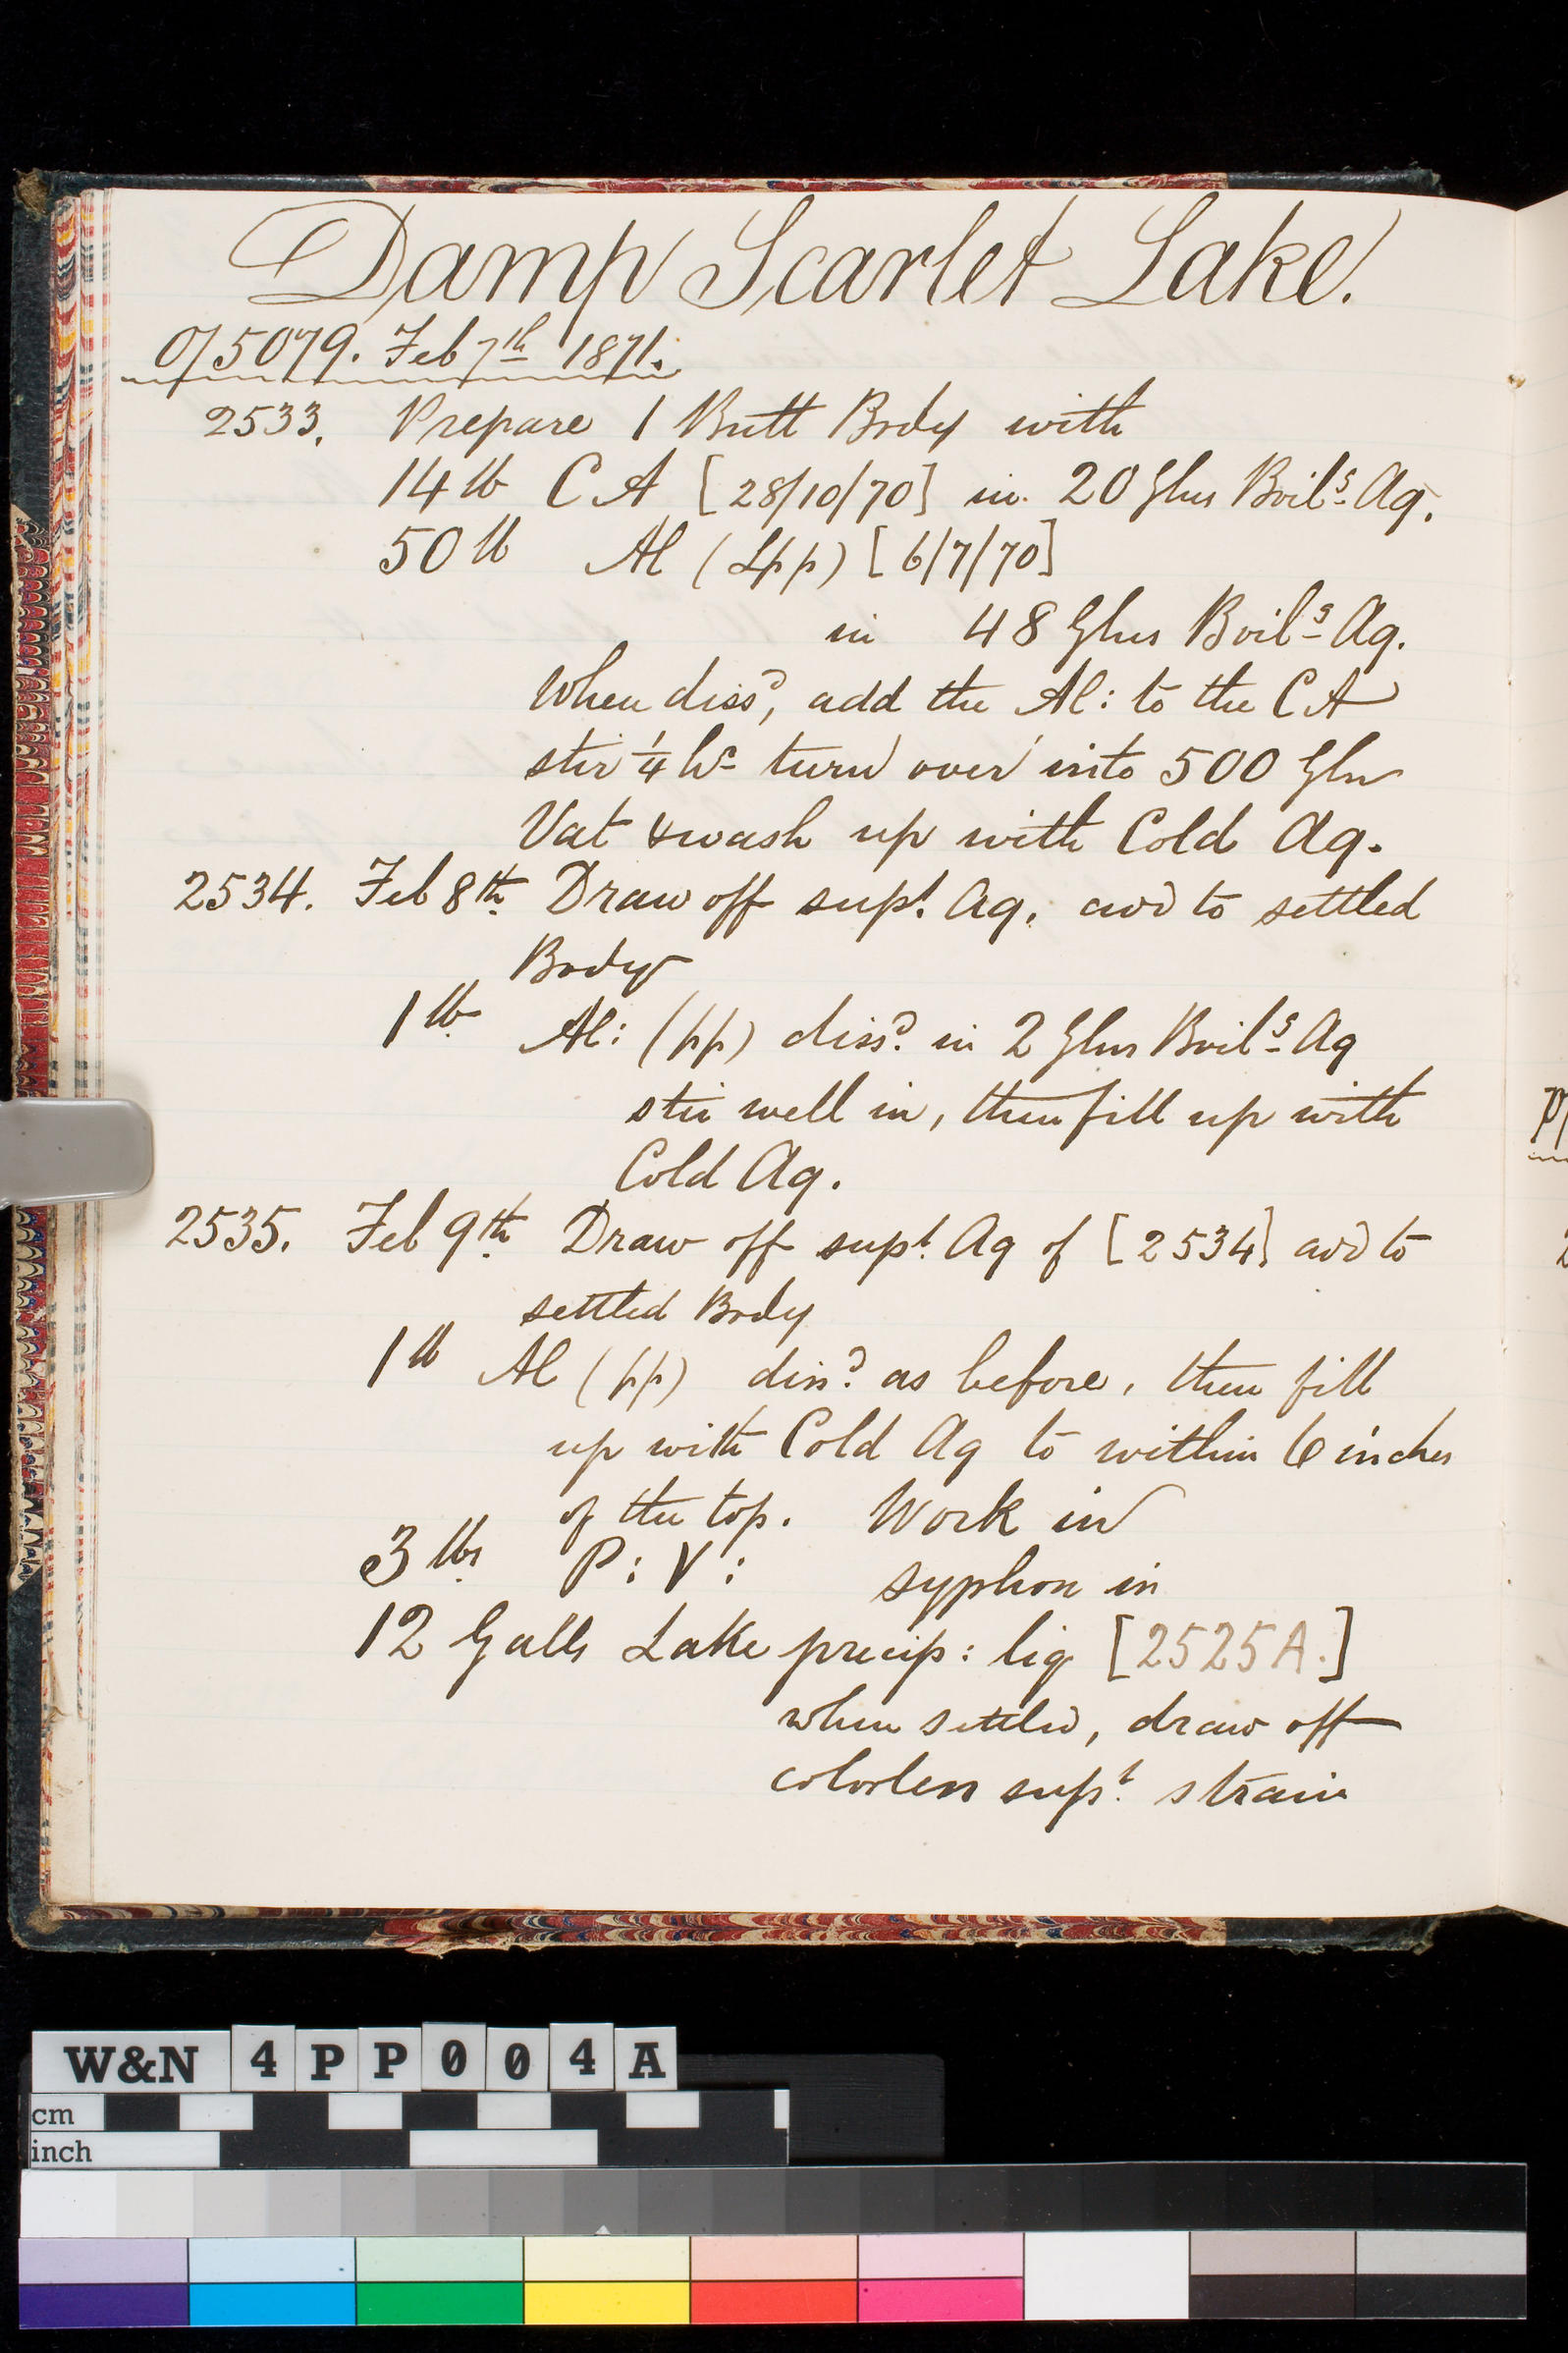 Damp Scarlet Lake.
O/5079. Feb 7th 1871.
2533. Prepare 1 Butt Body with
14 lb C A [28/10/70] in 20 Glns Boilg Aq.
50 lb Al (Lpp) [6/7/70]
in 48 Glns Boilg Aq.
When dissd, add the Al: to the C A
stir 1/4 hr turn over into 500 Gln
Vat & wash up with Cold Aq.
2534. Feb 8th Draw off supt. Aq. add to settled
Body
1 lb Al: (pp) dissd. in 2 Glns Boilg Aq
stir well in, then fill up with
Cold Aq.
2535. Feb 9th Draw off supt. Aq of [2534] add to
settled Body
1 lb Al (pp) dissd. as before, then fill
up with Cold Aq to within 6 inches
of the top. Work in
3 lbs P: V: syphon in
12 Galls Lake precip: liq [2525A.]
when settled, draw off
colorless supt. strain
W&N 4PP004A
cm
inch